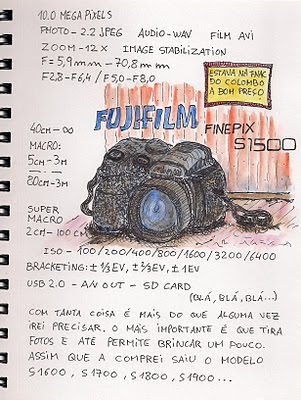 10.0 MEGA PIXELS
PHOTO - 2.2 JPEG AUDIO-WAV FILM AVI
ZOOM-12X IMAGE STABILIZATION
F=5,9mm - 70,8mm
F2,8-F6,4 / F5,0-F8,0
ESTAVA NA FNAC
DO COLOMBO
A BOM PREÇO
FUJIFILM
FINEPIX
S1500
40cm - ∞
MACRO:
5cm-3m
80cm-3m
SUPER
MACRO
2cm-100cm
ISO - 100/200/400/800/1600/3200/6400
BRACKETING: ± 1/3EV, ± 2/3EV, ± 1EV
USB 2.0 - A/V OUT - SD CARD
(BLÁ, BLÁ, BLÁ...)
COM TANTA COISA É MAIS DO QUE ALGUMA VEZ
IREI PRECISAR. O MAIS IMPORTANTE É QUE TIRA
FOTOS E ATÉ PERMITE BRINCAR UM POUCO.
ASSIM QUE A COMPREI SAIU O MODELO
S1600, S1700, S1800, S1900...